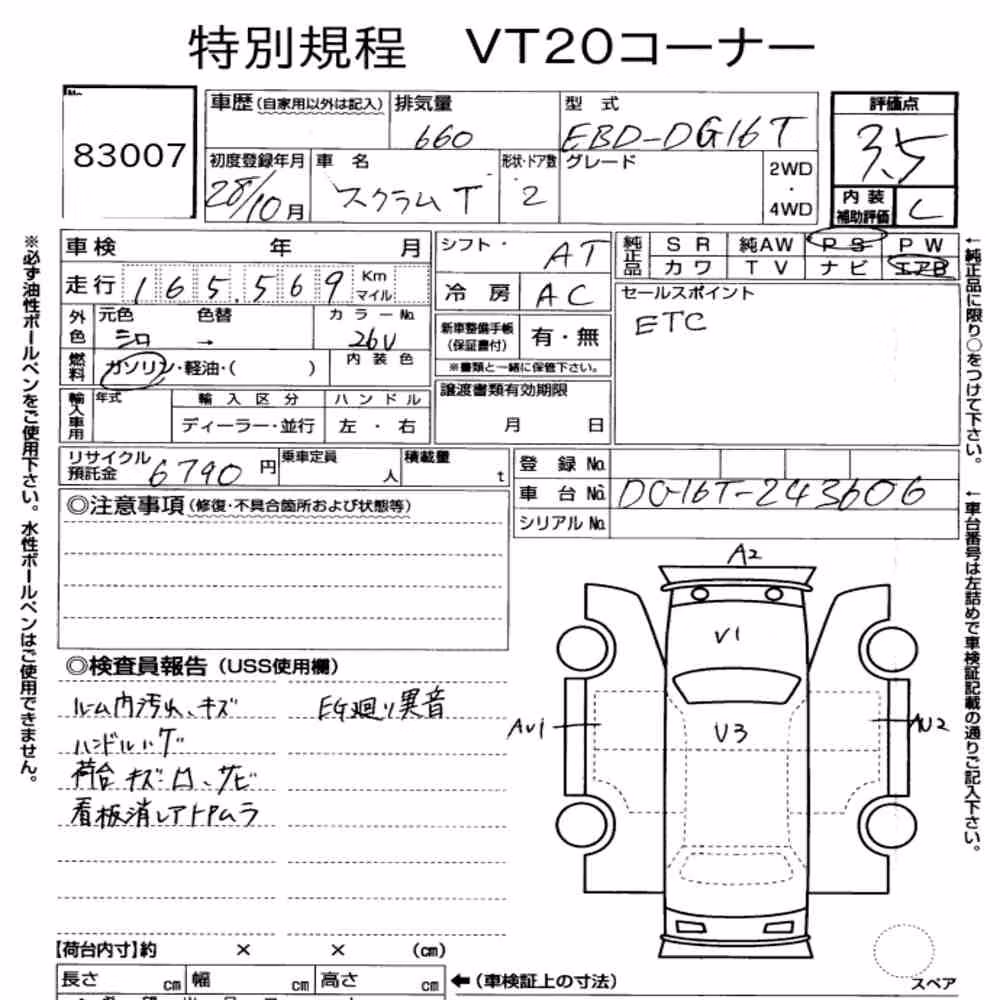 特別規程 VT20コーナー
No.
83007
車歴 (自家用以外は記入)
排気量
660
型式
EBD-DG16T
評価点
3.5
初度登録年月
28/10月
車名
スクラムT
形状・ドア数
2
グレード
2WD
・
4WD
内装
補助評価
C
車検 年 月
シフト・ AT
純正品
SR 純AW PS PW
カワ TV ナビ エアB
走行 165.569 Km マイル
冷房 AC
セールスポイント
ETC
外色
元色 色替 カラーNo.
シロ → 26U
新車整備手帳
(保証書付)
有・無
※書類と一緒に保管下さい。
燃料
ガソリン・軽油・( )
内装色
輸入車用
年式
輸入区分
ハンドル
ディーラー・並行
左・右
譲渡書類有効期限
月 日
リサイクル
預託金
6790円
乗車定員
人
積載量
t
登録No.
車台No. DG16T-243606
シリアルNo.
◎注意事項(修復・不具合箇所および状態等)
◎検査員報告(USS使用欄)
ルーム内汚れ、キズ
ハンドルハゲ
荷台キズ凹、サビ
看板消しアト
EG廻り異音
A2
U1
AU1
U3
AU2
スペア
【荷台内寸】約 × × (cm)
長さ cm 幅 cm 高さ cm
←(車検証上の寸法)
※必ず油性ボールペンをご使用下さい。水性ボールペンはご使用できません。
←純正品に限り○をつけて下さい。
←車台番号は左詰めで車検証記載の通りご記入下さい。